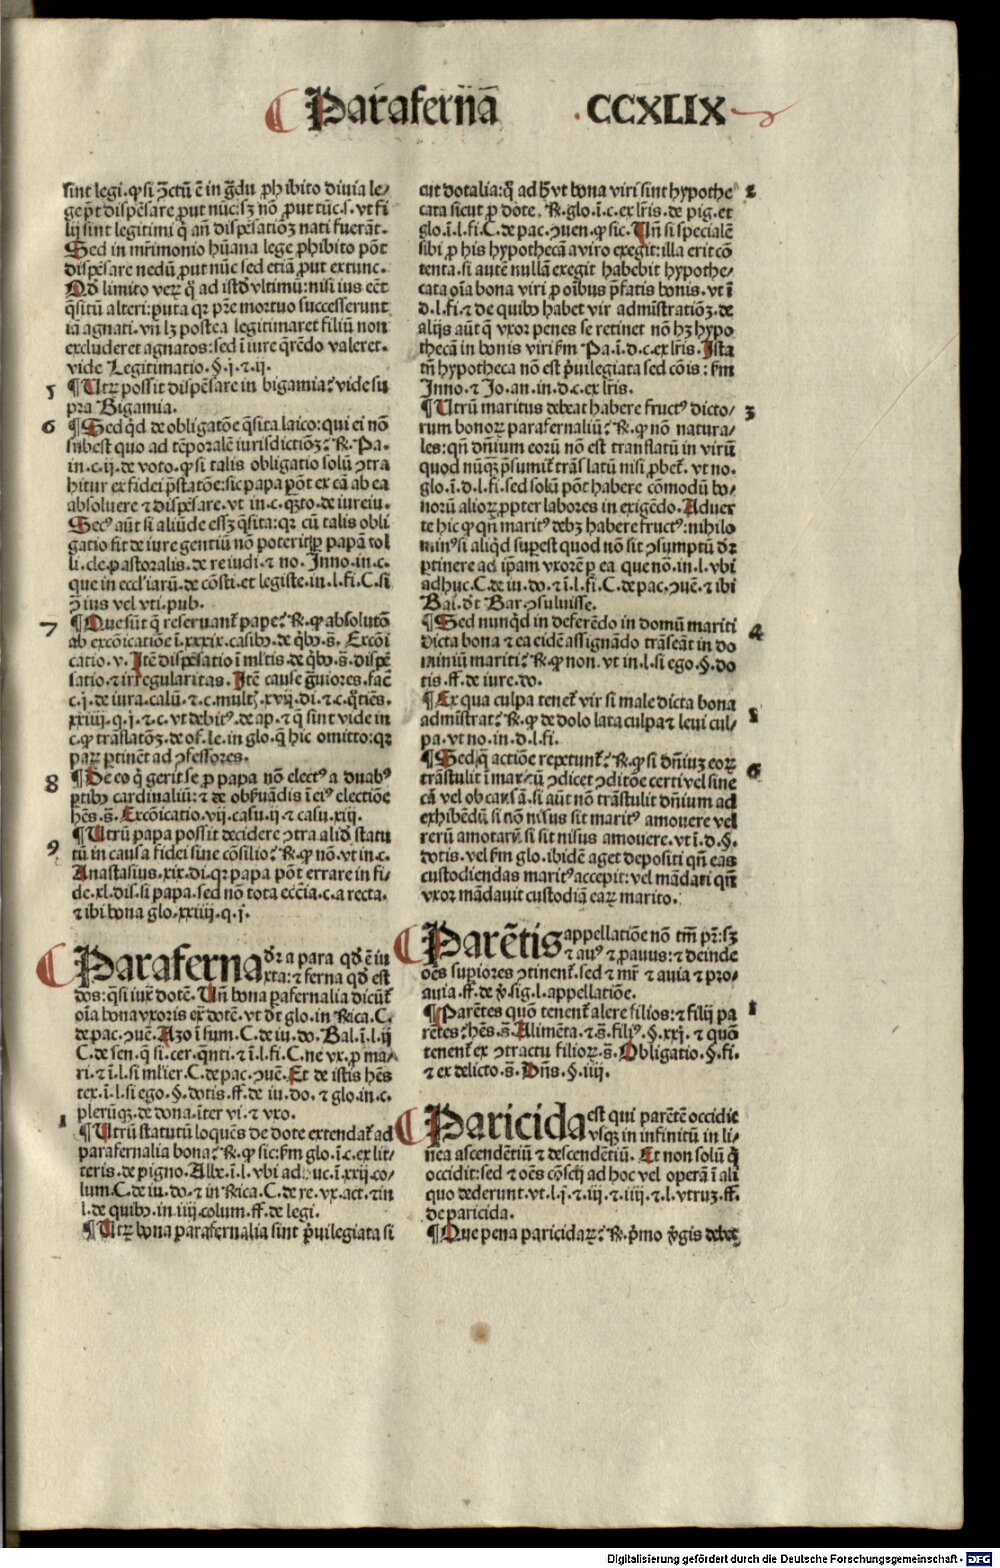 Paraferna̅ .CCXLIX
sint legi. ꝙ si ꝯctū ē in g̅du ꝓhibito diuia le/
ge p̅t dispēsare ꝓut nūc: sꝫ nō ꝓut tūc. s. vt fi
lij sint legitimi q̅ an̅ dispēsatiōꝫ nati fuerāt.
Sed in mr̅imonio hūana lege ꝓhibito pōt
dispēsare nedū ꝓut nūc sed etiā ꝓut extunc.
Qd̅ limito veꝝ q̊ ad istd̅ vltimū: nisi ius eēt
q̅sitū alteri: puta qꝛ pr̅e mortuo successerunt
iā agnati. vn̅ lꝫ postea legitimaret filiū non
excluderet agnatos: sed ī iure q̅rēdo valeret.
vide Legitimatio. §. j. ⁊ .ij.
5 ¶ Utꝝ possit dispēsare in bigamia? vide su
pra Bigamia.
6 ¶ Sed qd̅ de obligatōe q̅sita laico: qui ei nō
subest quo ad tēporalē iurisdictiōꝫ? R̅. Pa.
in. c. ij. de voto. ꝙ si talis obligatio solū ꝯtra
hitur ex fidei p̅statōe: sic papa pōt ex cā ab ea
absoluere ⁊ dispēsare. vt in. c. qꝫto. de iureiu.
Secꝰ aūt si aliūde essꝫ q̅sita: qꝛ cū talis obli
gatio fit de iure gentiū nō poterit ꝑ papā tol
li. cle. pastoralis. de re iudi. ⁊ no. Inno. in. c.
que in eccl'iarū. de cōsti. et legiste. in. l. fi. C. si
ꝯ̅ ius vel vti. pub.
7 ¶ Que sūt q̅ reseruant̅ pape? R̅. ꝙ absolutō
ab excōicatiōe ī. xxxix. casibꝫ. de q̅bꝫ. s̅. Excōi
catio. v. Itē dispēsatio ī ml̅tis de q̅bꝫ. s̅. dispē
satio ⁊ irregularitas. Itē cause g̅uiores. fac̅
c. j. de iura. calū. ⁊ .c. multꝫ. xvij. di. ⁊ .c. q̅tiēs.
xxiiij. q. j. ⁊ .c. vt debitꝰ. de ap. ⁊ q̅ sint vide in
c. ꝙ trāslatōꝫ. de of. le. in glo. q̅ hic omitto: qꝛ
paꝝ ꝑtinēt ad ꝯfessores.
8 ¶ De eo q̅ gerit se ꝓ papa nō electꝰ a duabꝰ
ꝑtibꝫ cardinaliū: ⁊ de obẜuādis ī eiꝰ electiōe
hēs. s̅. Excōicatio. vij. casu. ij. ⁊ casu. xij.
9 ¶ Utrū papa possit decidere ꝯtra aliqd̅ statu
tū in causa fidei sine cōsilio? R̅. ꝙ nō. vt in. c.
Anastasius. xix. di. qꝛ papa pōt errare in fi/
de. xl. dis. si papa. sed nō tota ecc̅ia. c. a recta.
⁊ ibi bona glo. xxiiij. q. j.
Paraferna dr̅ a para qd̅ ē iu
xta: ⁊ ferna qd̅ est
dos: q̅si iux̅ dotē. Un̅ bona ꝑafernalia dicūt̅
oīa bona vxoris ex̅ dotē. vt dt̅ glo. in R̅ica. C.
de pac. ꝯuē. Azo ī sum. C. de iu. do. Bal. ī. l. ij
C. de sen. q̅ si. cer. q̅nti. ⁊ ī. l. fi. C. ne vx. ꝓ ma/
ri. ⁊ ī. l. si ml̅ier. C. de pac. ꝯuē. Et de istis hēs
tex. ī. l. si ego. §. dotis. ff. de iu. do. ⁊ glo. in. c.
plerūqꝫ. de dona. īter vi. ⁊ vxo.
1 ¶ Utrū statutū loquēs de dote extendat̅ ad
parafernalia bona? R̅. ꝙ sic: ẜm glo. ī. c. ex lit/
teris. de pigno. Albe̅. ī. l. vbi adhuc. ī. xxij. co/
lum. C. de iu. do. ⁊ in R̅ica. C. de re. vx. act. ⁊ in
l. de quibꝫ. in. iiij. colum. ff. de legi.
¶ Utꝝ bona parafernalia sint p̅uilegiata si
cut dotalia: q̊ ad h̅ vt bona viri sint hypothe 2
cata sicut ꝓ dote. R̅. glo. ī. c. ex lr̅is. de pig. et
glo. ī. l. fi. C. de pac. ꝯuen. ꝙ sic. Un̅ si specialē
sibi ꝓ his hypothecā a viro exegit: illa erit cō
tenta. si autē nullā exegit habebit hypothe/
cata oīa bona viri ꝓ oībus p̅fatis bonis. vt ī
d. l. fi. ⁊ de quibꝫ habet vir admīstratiōꝫ. de
alijs aūt q̅ vxor penes se retinet nō hꝫ hypo
thecā in bonis viri ẜm Pa. ī. d. c. ex lr̅is. Ista
tn̅ hypotheca nō est p̅uilegiata sed cōis: ẜm
Inno. ⁊ Jo. an. in. d. c. ex lr̅is.
¶ Utrū maritus debeat habere fructꝰ dicto/ 3
rum bonoꝝ parafernaliū? R̅. ꝙ nō natura/
les: qn̅ dn̅ium eorū nō est translatū in virū
quod nūqꝫ p̅sumit̅ trāslatū nisi ꝓbet̅. vt no.
glo. ī. d. l. fi. sed solū pōt habere cōmodū bo/
norū alioꝝ ꝓpter labores in exigēdo. Aduer
te hic ꝙ qn̅ maritꝰ debꝫ habere fructꝰ: nihilo
minꝰ si aliqd̅ suꝑest quod nō sit ꝯsumptū dꝫ
ꝑtinere ad ip̅am vxorē ꝑ ea que nō. in. l. vbi
adhuc. C. de iu. do. ⁊ ī. l. fi. C. de pac. ꝯuē. ⁊ ibi
Bal. dt̅ Bar. ꝯsuluisse.
¶ Sed nunqd̅ in deferēdo in domū mariti 4
dicta bona ⁊ ea eidē assignādo trāseāt in do
miniū mariti? R̅. ꝙ non. vt in. l. si ego. §. do
tis. ff. de iure. do.
¶ Ex qua culpa tenet̅ vir si male dicta bona 5
admīstrat? R̅. ꝙ de dolo lata culpa ⁊ leui cul/
pa. vt no. in. d. l. fi.
¶ Sed q̅ actiōe repetunt̅? R̅. ꝙ si dn̅iuꝫ eoꝝ 6
trāstulit ī maritū ꝯdicet ꝯditōe certi vel sine
cā vel ob causā. si aūt nō trāstulit dn̅ium ad
exhibēdū si nō nisus sit maritꝰ amouere vel
rerū amotarū si sit nisus amouere. vt ī. d. §.
dotis. vel ẜm glo. ibidē aget depositi qn̅ eas
custodiendas maritꝰ accepit: vel mādati qn̅
vxor mādauit custodiā eaꝝ marito.
Parētis appellatiōe nō tm̅ pr̅: sꝫ
⁊ auꝰ ⁊ ꝓauus: ⁊ deinde
oēs suꝑiores ꝯtinent̅. sed ⁊ mr̅ ⁊ auia ⁊ pro/
auia. ff. de v̅. sig. l. appellatiōe.
¶ Parētes quō tenent̅ alere filios: ⁊ filij pa 1
rētes: hēs. s̅. Alimēta. ⁊ .s̅. filiꝰ. §. xxj. ⁊ quō
tenent̅ ex ꝯtractu filioꝝ. s̅. Obligatio. §. fi.
⁊ ex delicto. s̅. Dn̅s. §. iiij.
Paricida est qui parētē occidit
vsqꝫ in infinitū in li/
nea ascendētiū ⁊ descendētiū. Et non solū q̅
occidit: sed ⁊ oēs cōscij ad hoc vel operā ī ali
quo dederunt. vt. l. j. ⁊ .iij. ⁊ .iiij. ⁊ .l. vtruꝫ. ff.
de paricida.
¶ Que pena paricidaꝝ? R̅. p̅mo v̅gis debet
Digitalisierung gefördert durch die Deutsche Forschungsgemeinschaft - DFG